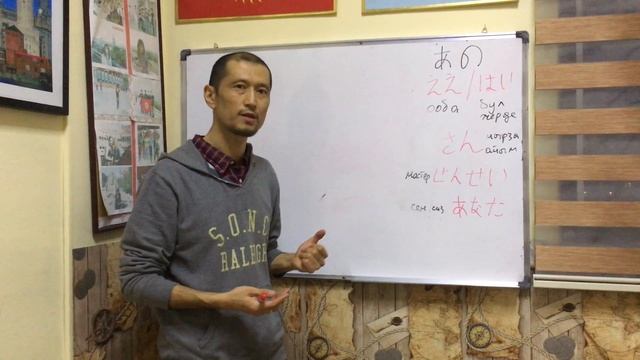 あの
ええ/はい
ооба бул жерде
さん мырза айым
мастер せんせい
сен. сиз あなた
S.O.N.O
RALEIGH